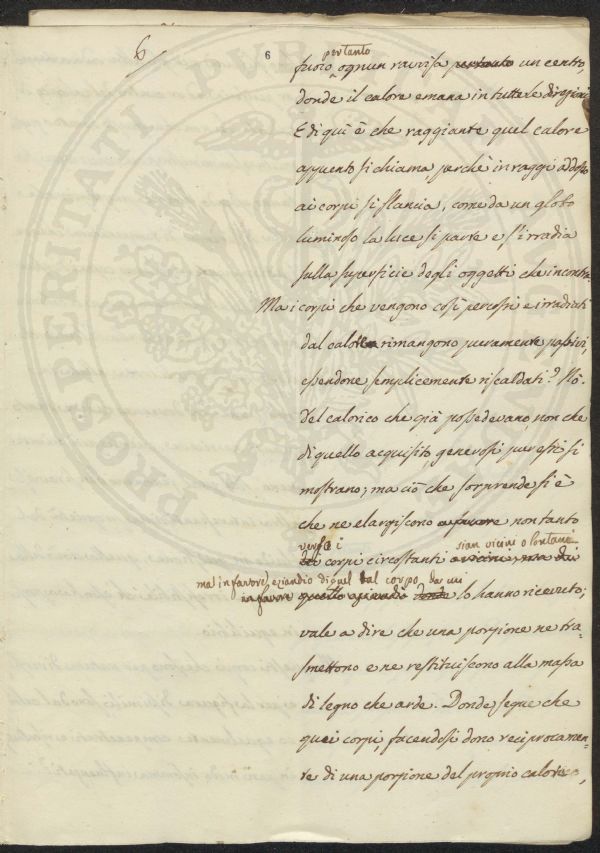 6
6
pertanto
fuoco ognun ravvisa pertanto un centro,
donde il calore emana in tutte le direzioni
E di quì è che raggiante quel calore
appunto si chiama, perchè in raggi addosso
ai corpi si slancia, come da un globo
luminoso la luce si parte e s'irradia
sulla superficie degli oggetti che incontra.
Ma i corpi che vengono così percossi e irradiati
dal calore rimangono puramente passivi,
essendone semplicemente riscaldati? Nò.
Del calorico che già possedevano, non che
di quello acquisito, generosi pur essi si
mostrano; ma ciò che sorprende si è
che ne elargiscono a favore non tanto
verso i
sian vicini o lontani
dei corpi circostanti o vicini, ma di
ma in favore eziandio di quel tal corpo, da cui
in favore quello eziandio donde lo hanno ricevuto;
vale a dire che una porzione ne tra=
smettono e ne restituiscono alla massa
di legno che arde. Donde segue che
quei corpi, facendosi dono reciprocamen=
te di una porzione del proprio calorico,
PROSPERITATI PUBLICAE